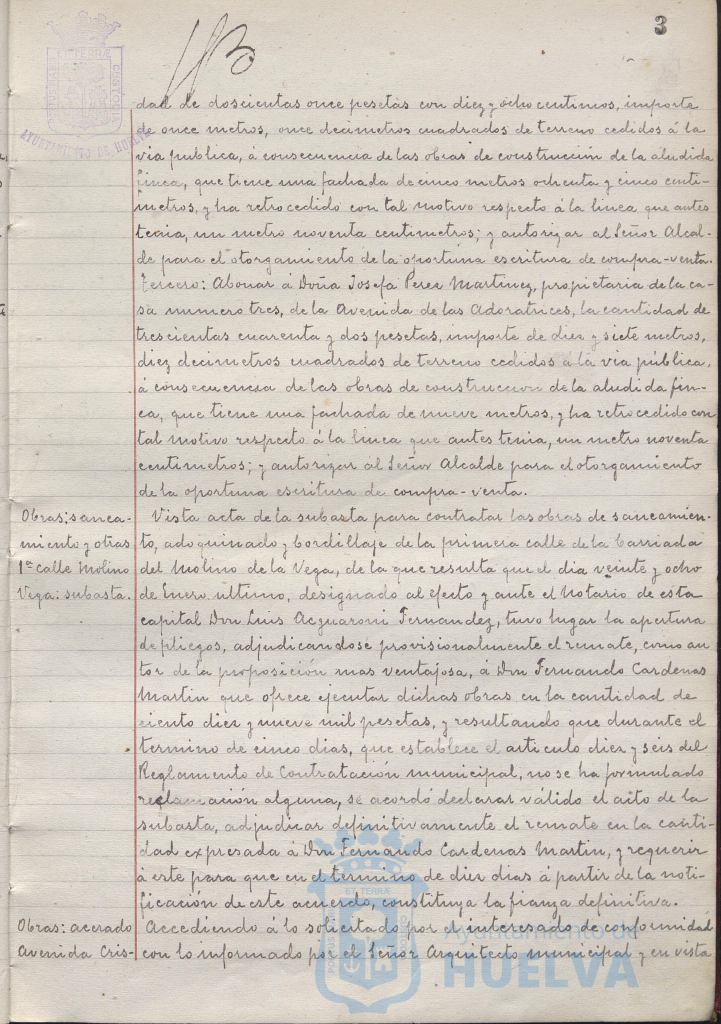 3
AYUNTAMIENTO DE HUELVA
dad de doscientas once pesetas con diez y ocho centimos, importe
de once metros, once decimetros cuadrados de terreno cedidos á la
via publica, á consecuencia de las obras de construcción de la aludida
finca, que tiene una fachada de cinco metros ochenta y cinco centi-
metros, y ha retrocedido con tal motivo respecto á la linea que antes
tenia, un metro noventa centimetros; y autorizar al Señor Alcal-
de para el otorgamiento de la oportuna escritura de compra-venta.
Tercero: Abonar á Doña Josefa Perez Martinez, propietaria de la ca-
sa numero tres, de la Avenida de las Adoratrices, la cantidad de
trescientas cuarenta y dos pesetas, importe de diez y siete metros,
diez decimetros cuadrados de terreno cedidos á la via pública,
á consecuencia de las obras de construccion de la aludida fin-
ca, que tiene una fachada de nueve metros, y ha retrocedido con
tal motivo respecto á la linea que antes tenia, un metro noventa
centimetros; y autorizar al Señor Alcalde para el otorgamiento
de la oportuna escritura de compra-venta.
Obras; sanea-
miento y otras
1ª calle Molino
Vega: subasta.
Vista acta de la subasta para contratar las obras de saneamien-
to, adoquinado y bordillaje de la primera calle de la barriada
del Molino de la Vega, de la que resulta que el dia veinte y ocho
de Enero último, designado al efecto y ante el Notario de esta
capital Don Luis Acquaroni Fernandez, tuvo lugar la apertura
de pliegos, adjudicandose provisionalmente el remate, como au-
tor de la proposición mas ventajosa, á Don Fernando Cardenas
Martin que ofrece ejecutar dichas obras en la cantidad de
ciento diez y nueve mil pesetas, y resultando que durante el
termino de cinco dias, que establece el articulo diez y seis del
Reglamento de Contratación municipal, no se ha formulado
reclamación alguna, se acordó declarar válido el acto de la
subasta, adjudicar definitivamente el remate en la canti-
dad expresada á Don Fernando Cardenas Martin, y requerir
á este para que en el termino de diez dias á partir de la noti-
ficación de este acuerdo, constituya la fianza definitiva.
Obras: acerado
Avenida Cris-
Accediendo á lo solicitado por el interesado de conformidad
con lo informado por el Señor Arquitecto municipal y en vista
Ayuntamiento de
HUELVA